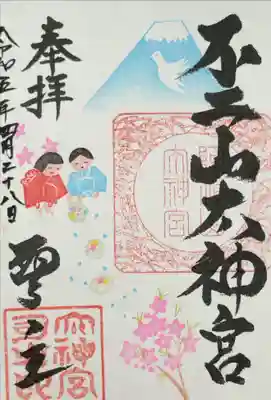 不二山太神宮
奉拝
令和五年四月二十八日
太神宮